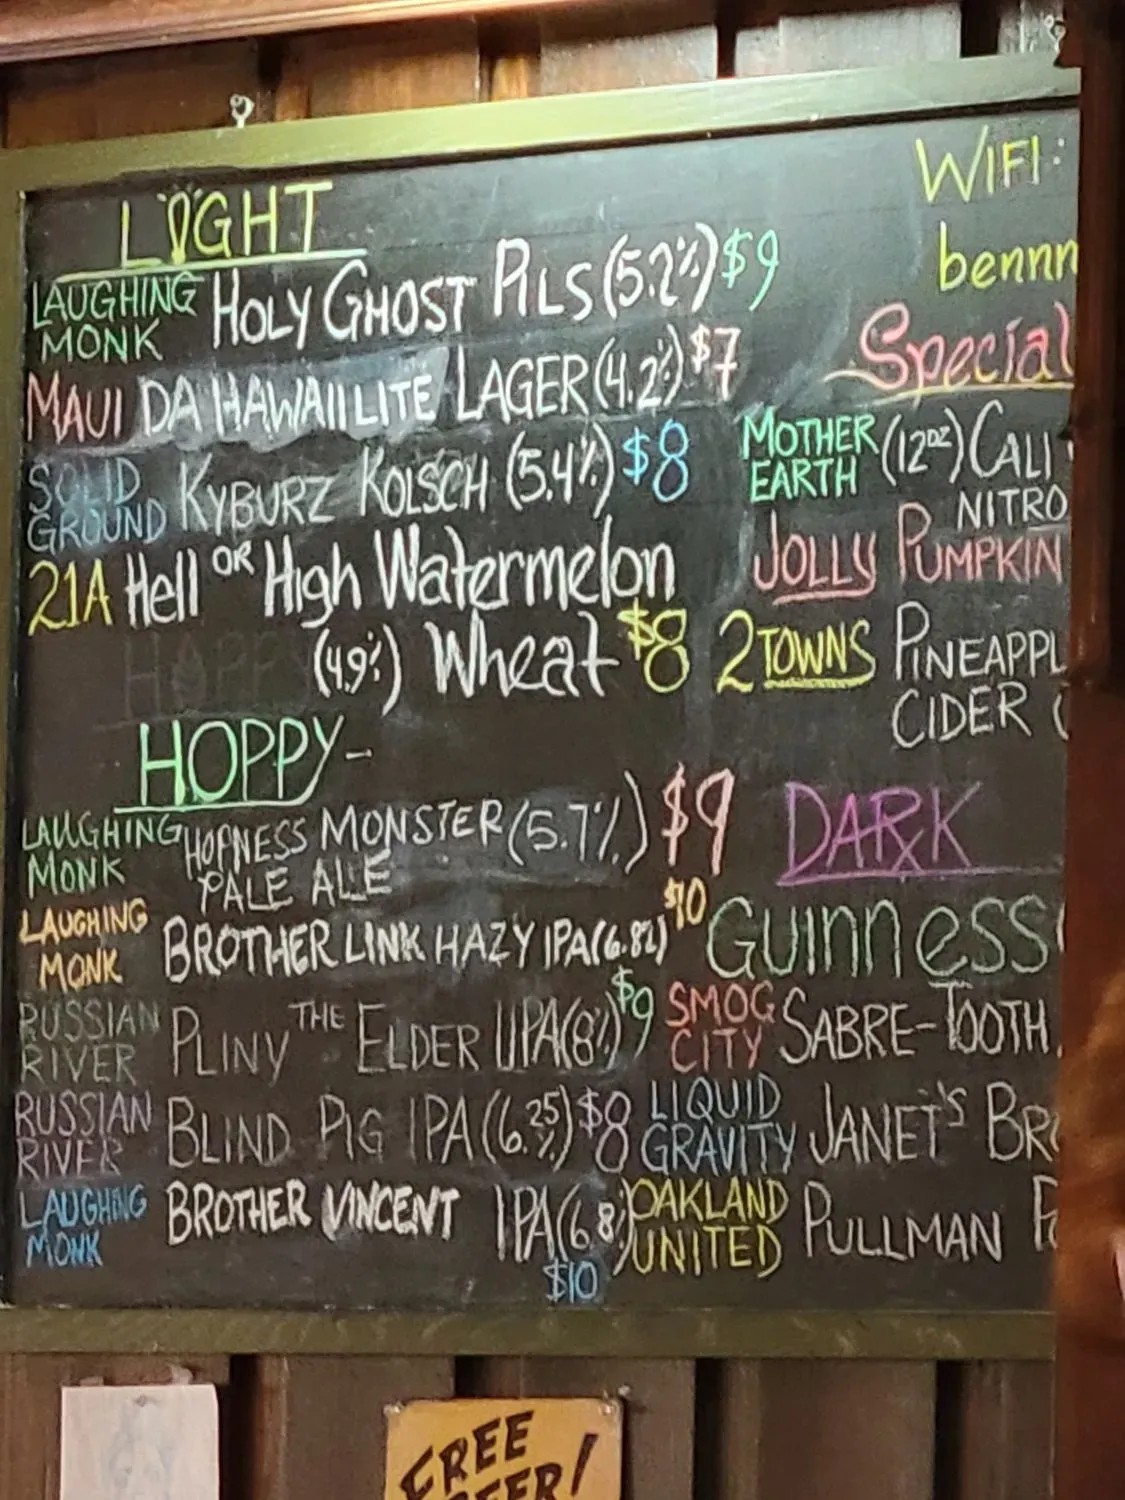 LIGHT
LAUGHING MONK HOLY GHOST PILS (5.2%) $9
MAUI DA HAWAII LITE LAGER (4.2%) $7
SOLID GROUND KYBURZ KOLSCH (5.4%) $8
21A Hell OR High Watermelon
(4.9%) Wheat $8
HOPPY-
LAUGHING MONK HOPNESS MONSTER (5.7%) $9
PALE ALE
LAUGHING MONK BROTHER LINK HAZY IPA (6.8%) $10
RUSSIAN RIVER PLINY THE ELDER IIPA (8%) $9
RUSSIAN RIVER BLIND PIG IPA (6.25%) $8
LAUGHING MONK BROTHER VINCENT IPA (6.8%)
$10
WIFI:
bennn
Special
MOTHER EARTH (12OZ) CALI
NITRO
JOLLY PUMPKIN
2 TOWNS PINEAPPL
CIDER (
DARK
GUINNESS
SMOG CITY SABRE-TOOTH
LIQUID GRAVITY JANET'S BRO
OAKLAND UNITED PULLMAN
FREE
BEER!